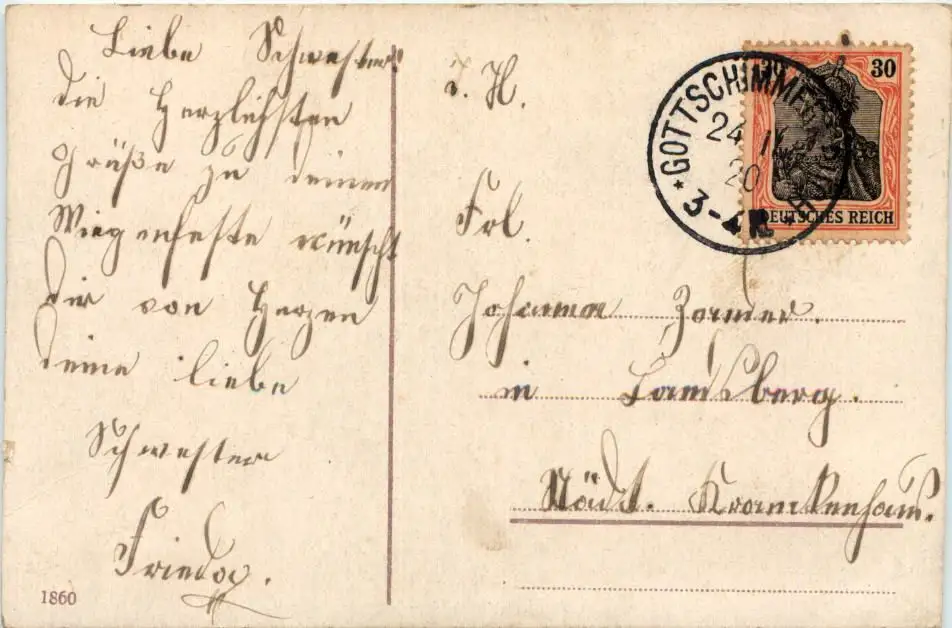 Liebe Schwester!
die Herzlichsten
Grüße zu deinem
Wiegenfeste wünscht
dir von Herzen
deine liebe
Schwester
Frieda.
1860
I. H.
Frl.
Johanna
in Landsberg.
Städt. Krankenhaus.
GOTTSCHIMMERBRUCH
24
20
3-4 N.
30
DEUTSCHES REICH